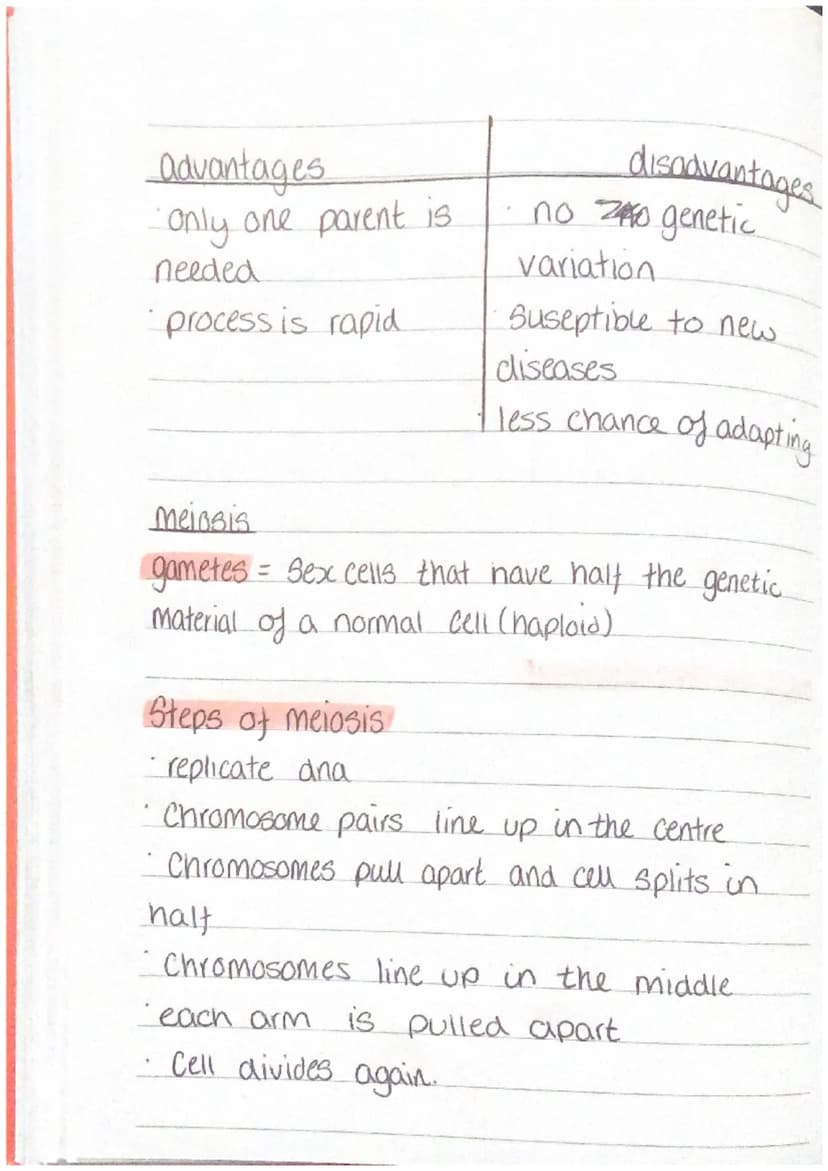 advantages disadvantages
· only one parent is · no genetic
needed variation
· process is rapid · suseptible to new
diseases
· less chance of adapting
meiosis
gametes = sex cells that have half the genetic
material of a normal cell (haploid)
Steps of meiosis
· replicate dna
· Chromosome pairs line up in the centre
· Chromosomes pull apart and cell splits in
half
· Chromosomes line up in the middle
· each arm is pulled apart
· Cell divides again.